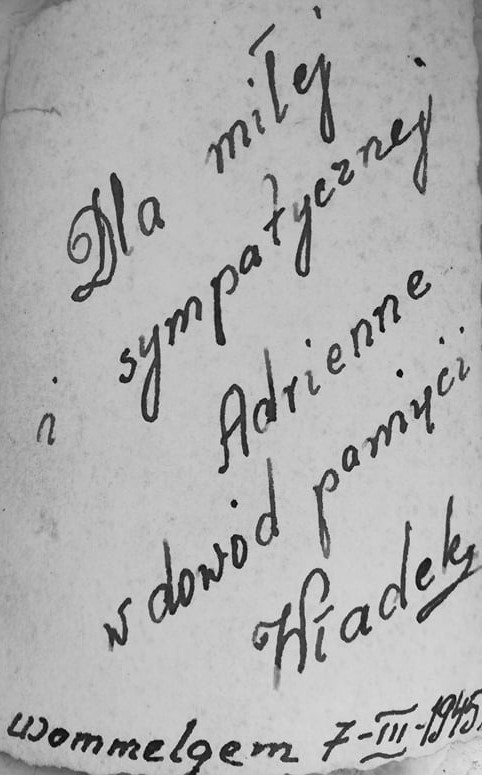 Dla miłej
i sympatycznej
Adrienne
w dowód pamięci
Władek
Wommelgem 7-III-1945